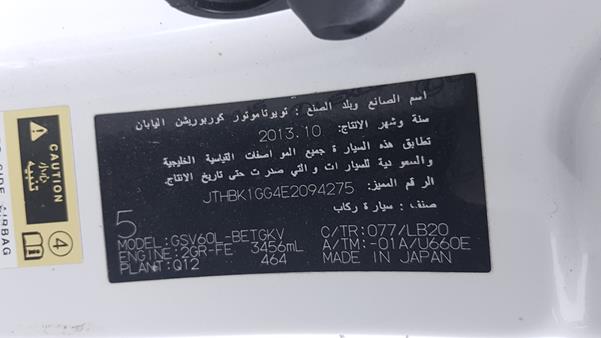 اسم الصانع وبلد الصنع : تويوتا موتور كوربوريشن اليابان
سنة وشهر الانتاج: 2013.10
تطابق هذه السيارة جميع المواصفات القياسية الخليجية
والسعودية للسيارات والتي صدرت حتى تاريخ الانتاج.
الرقم المميز: JTHBK1GG4E2094275
صنف: سيارة ركاب
5
MODEL:GSV60L-BETGKV C/TR:077/LB20
ENGINE:2GR-FE 3456mL A/TM:-01A/U660E
PLANT:Q12 464 MADE IN JAPAN
CAUTION
تنبيه
4
SIDE AIRBAG